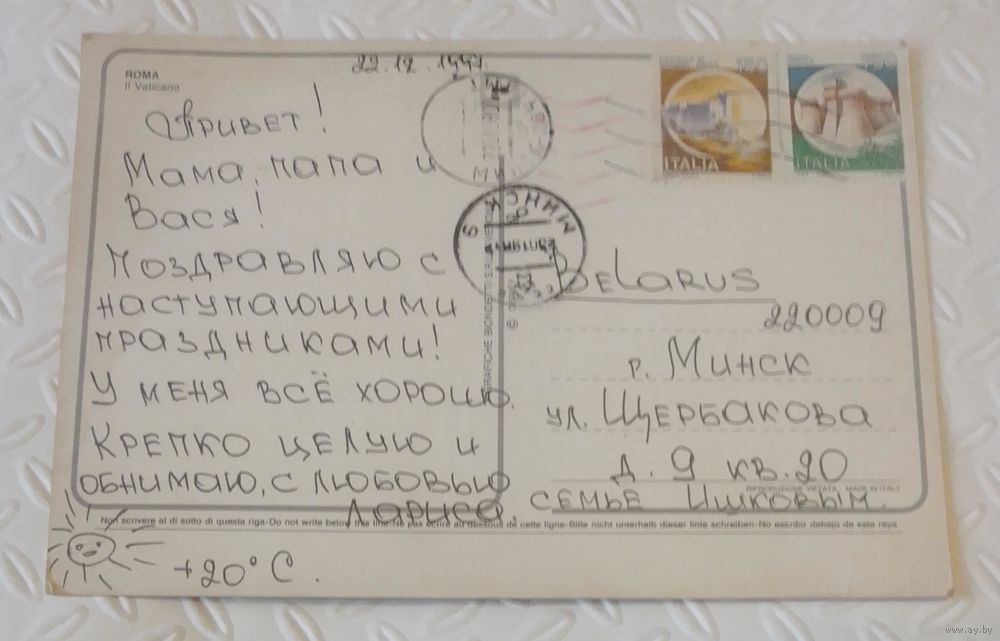 ROMA
Il Vaticano
22.12.1997.
Привет!
Мама, папа и
Вася!
Поздравляю с
наступающими
праздниками!
У меня всё хорошо.
Крепко целую и
обнимаю, с любовью
Лариса.
+20°C.
ITALIA
ITALIA
МИНСК
Belarus
220009
г. Минск
ул. Щербакова
д. 9 кв. 20
семье Ишковым.
RIPRODUZIONE VIETATA - MADE IN ITALY
Non scrivere al di sotto di questa riga-Do not write below this line-Ne pas écrire au-dessous de cette ligne-Bitte nicht unterhalb dieser linie schreiben-No escribir debajo de esta raya
www.ay.by